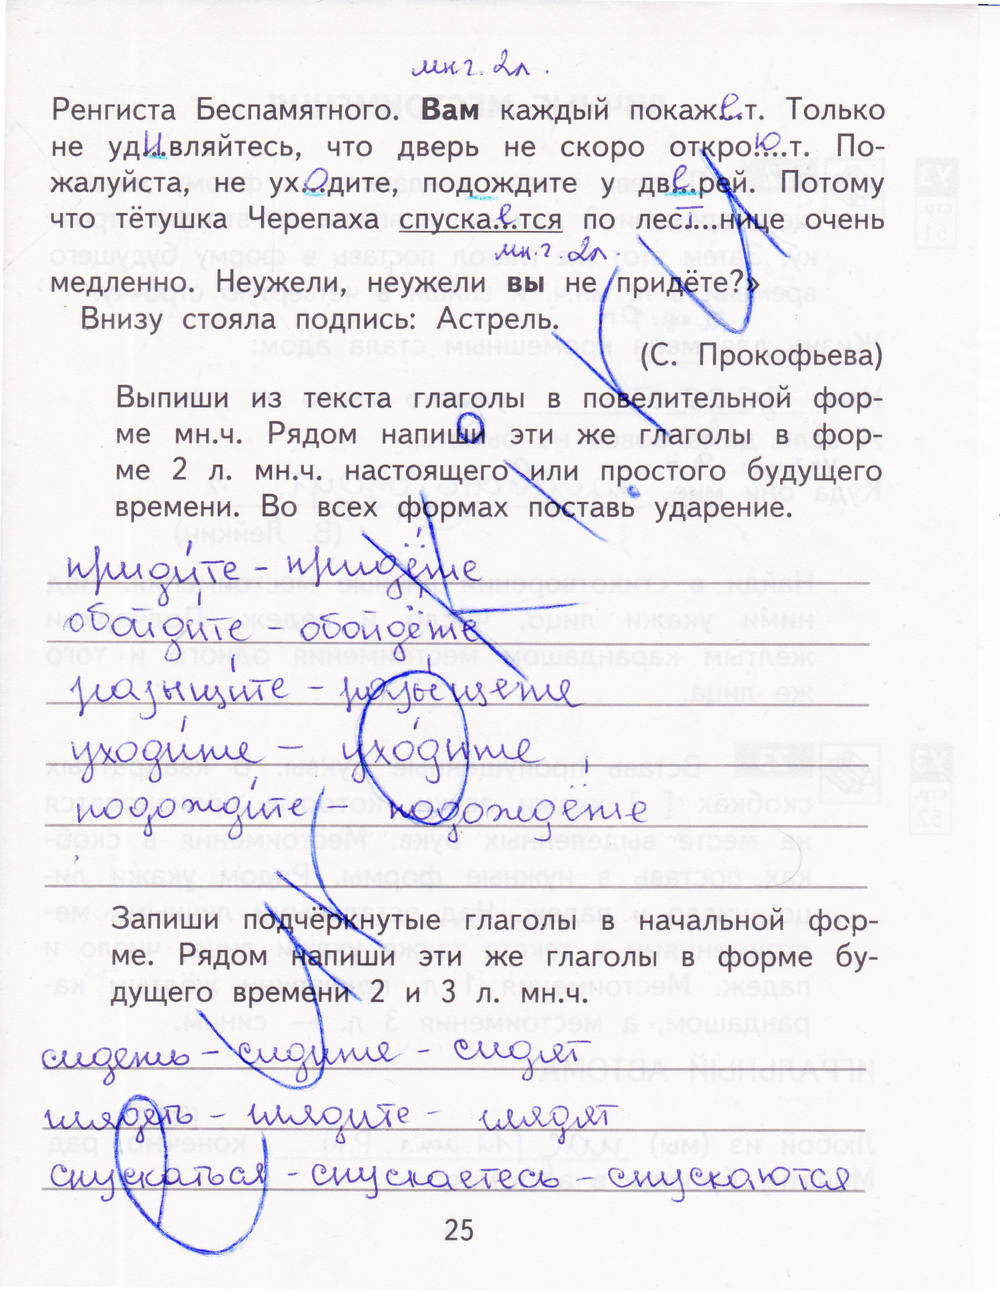 мн.г. 2л.
Ренгиста Беспамятного. Вам каждый покаже.т. Только
не уди.вляйтесь, что дверь не скоро откро.ю.т. По-
жалуйста, не ухо.дите, подождите у две.рей. Потому
что тётушка Черепаха спускае.тся по лес...нице очень
мн.г. 2л
медленно. Неужели, неужели вы не придёте?»
Внизу стояла подпись: Астрель.
(С. Прокофьева)
Выпиши из текста глаголы в повелительной фор-
ме мн.ч. Рядом напиши эти же глаголы в фор-
ме 2 л. мн.ч. настоящего или простого будущего
времени. Во всех формах поставь ударение.
придите - придёте
обойдите - обойдёте
разыщите - разыщете
уходите - уходите
подождите - подождёте
Запиши подчёркнутые глаголы в начальной фор-
ме. Рядом напиши эти же глаголы в форме бу-
дущего времени 2 и 3 л. мн.ч.
сидеть - сидите - сидят
глядеть - глядите - глядят
спускаться - спускаетесь - спускаются
25